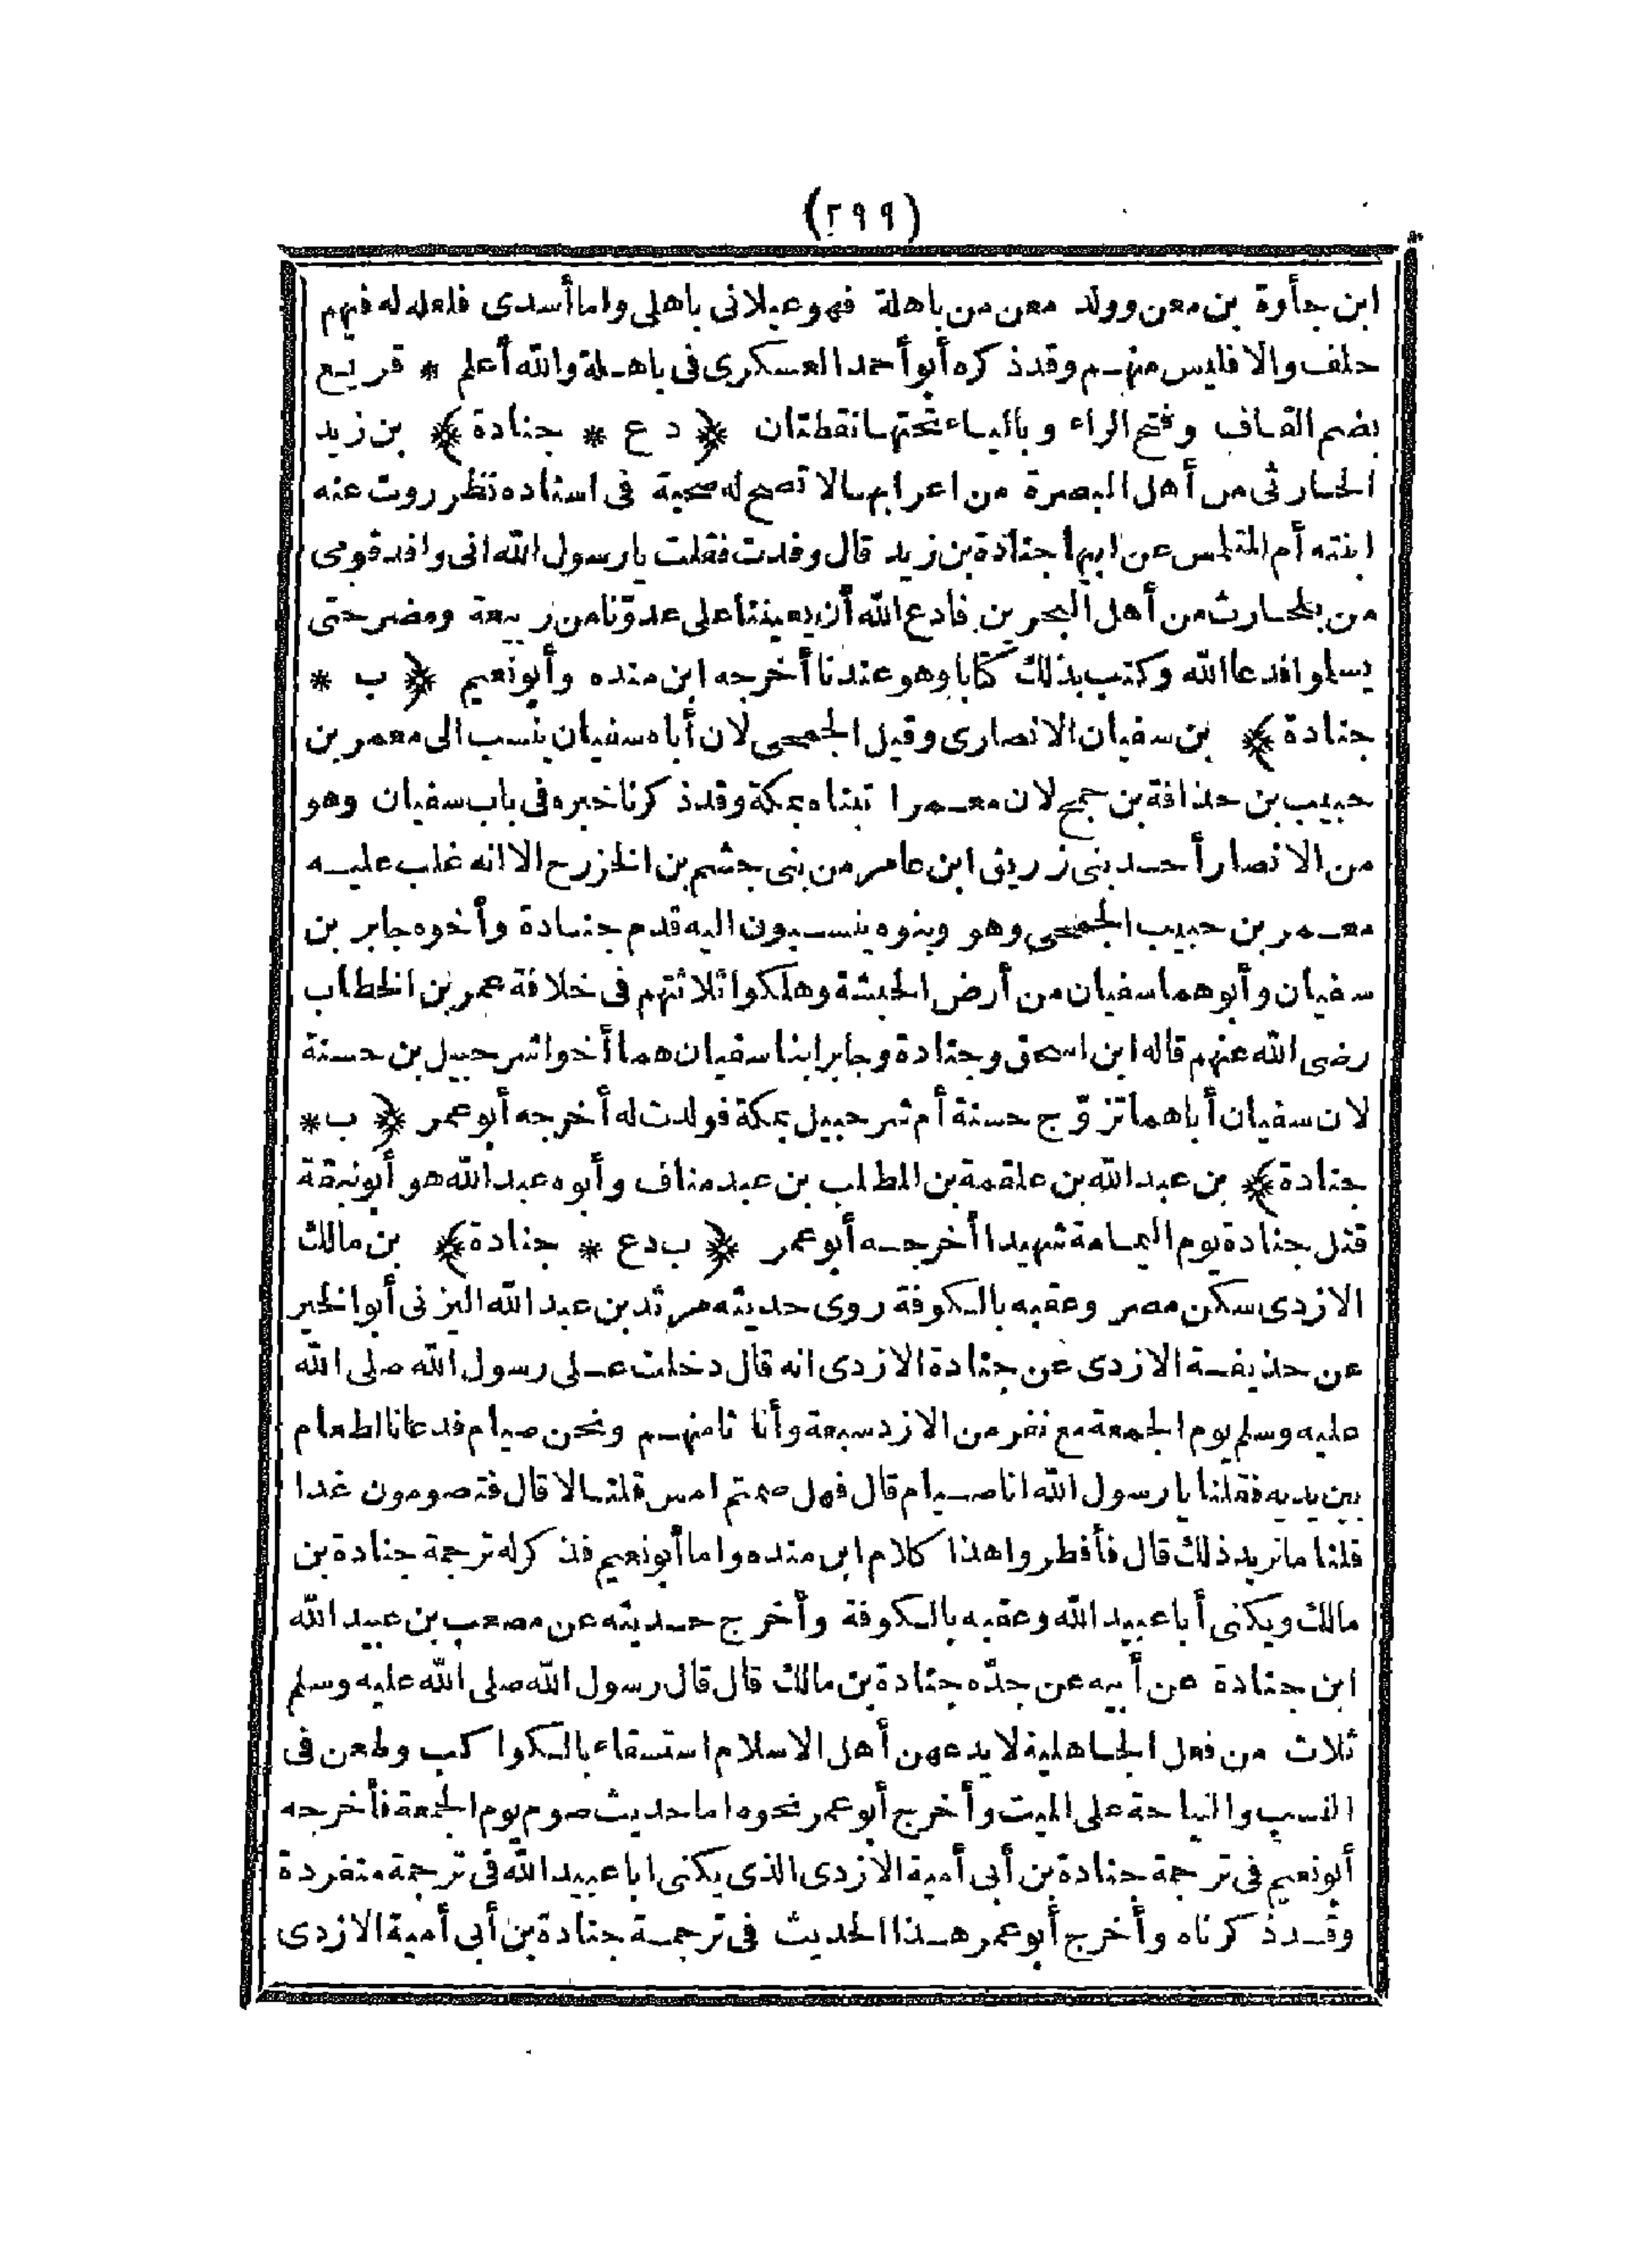 (٢٩٩)
ابن جأوة بن معن وولد معن من باهلة فهو عيلانى باهلى واما أسدى فلعله له فيهم
حلف والا فليس منهم وقد ذكره أبو أحمد العسكرى فى باهلة والله أعلم * قريع
بضم القاف وفتح الراء وبالياء تحتها نقطتان ﴿ د ع * جنادة ﴾ بن زيد
الحارثى من أهل البصرة من اعرابها لا تصح له صحبة فى اسناده نظر روت عنه
ابنته أم المتلمس عن ابيها جنادة بن زيد قال وفدت فقلت يا رسول الله انى وافد قومى
من بلحارث من أهل البحرين فادع الله أن يعيننا على عدوّنا من ربيعة ومضر حتى
يسلموا فدعا الله وكتب بذلك كتابا وهو عندنا أخرجه ابن منده وأبو نعيم ﴿ ب *
جنادة ﴾ بن سفيان الانصارى وقيل الجمحى لان أباه سفيان ينسب الى معمر بن
حبيب بن حذافة بن جمح لان معمرا تبناه بمكة وقد ذكرنا خبره فى باب سفيان وهو
من الانصار أحد بنى زريق ابن عامر من بنى جشم بن الخزرج الا انه غلب عليه
معمر بن حبيب الجمحى وهو وبنوه ينسبون اليه قدم جنادة وأخوه جابر بن
سفيان وأبوهما سفيان من أرض الحبشة وهلكوا ثلاثتهم فى خلافة عمر بن الخطاب
رضى الله عنهم قاله ابن اسحق وجنادة وجابر ابنا سفيان هما أخوا شرحبيل بن حسنة
لان سفيان أباهما تزوّج حسنة أم شرحبيل بمكة فولدت له أخرجه أبو عمر ﴿ ب *
جنادة ﴾ بن عبد الله بن علقمة بن المطلب بن عبد مناف وأبوه عبد الله هو أبو نبقة
قتل جنادة يوم اليمامة شهيدا أخرجه أبو عمر ﴿ ب د ع * جنادة ﴾ بن مالك
الازدى سكن مصر وعقبه بالكوفة روى حديثه مرثد بن عبد الله اليزنى أبو الخير
عن حذيفة الازدى عن جنادة الازدى انه قال دخلت على رسول الله صلى الله
عليه وسلم يوم الجمعة مع نفر من الازد سبعة وأنا ثامنهم ونحن صيام فدعانا لطعام
بين يديه فقلنا يا رسول الله انا صيام قال فهل صمتم امس قلنا لا قال فتصومون غدا
قلنا ما نريد ذلك قال فأفطروا هذا كلام ابن منده واما أبو نعيم فذكر له ترجمة جنادة بن
مالك ويكنى أبا عبيد الله وعقبه بالكوفة وأخرج حديثه عن مصعب بن عبيد الله
ابن جنادة عن أبيه عن جدّه جنادة بن مالك قال قال رسول الله صلى الله عليه وسلم
ثلاث من فعل الجاهلية لا يدعهن أهل الاسلام استسقاء بالكواكب وطعن فى
النسب والنياحة على الميت وأخرج أبو عمر نحوه اما حديث صوم يوم الجمعة فأخرجه
أبو نعيم فى ترجمة جنادة بن أبى أمية الازدى الذى يكنى ابا عبيد الله فى ترجمة منفردة
وقد ذكرناه وأخرج أبو عمر هذا الحديث فى ترجمة جنادة بن أبى أمية الازدى